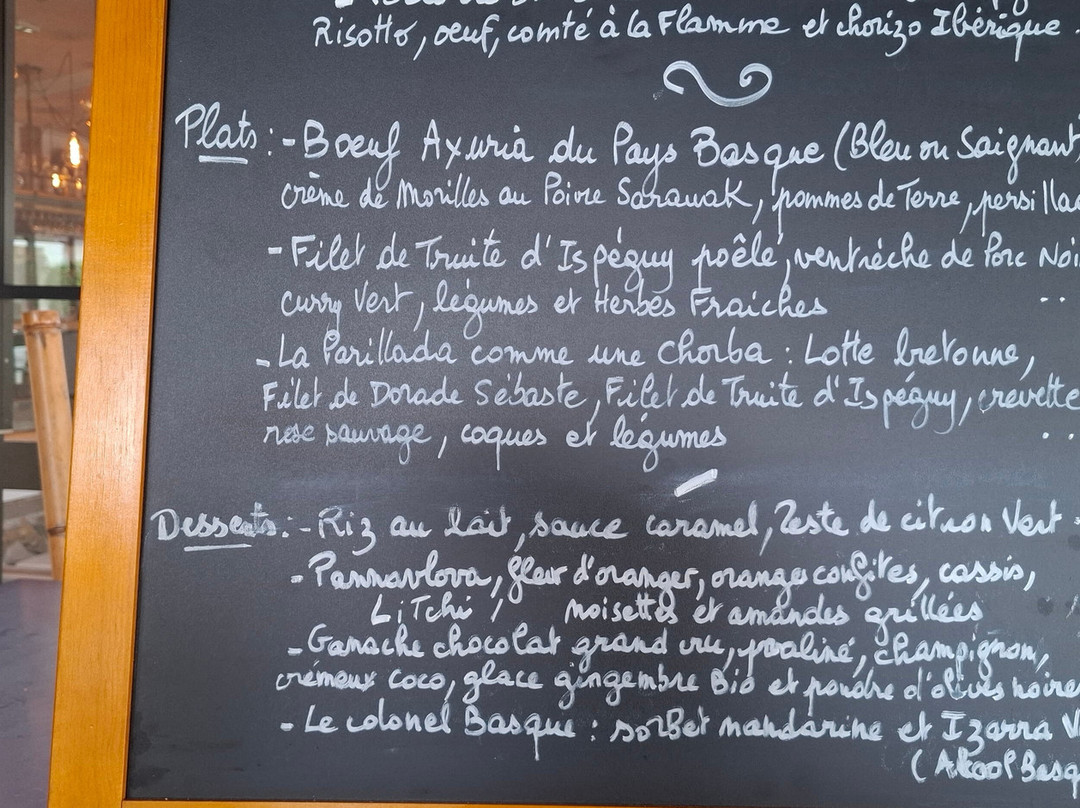 Risotto, oeuf, comté à la Flamme et chorizo Ibérique.
Plats : - Boeuf Axuria du Pays Basque (Bleu ou Saignant)
crème de Morilles au Poivre Sarawak, pommes de Terre,
- Filet de Truite d'Ispéguy poêlé, ventrèche de Porc Noi
curry Vert, légumes et Herbes Fraiches ..
- La Parillada comme une Chorba : Lotte bretonne,
Filet de Dorade Sébaste, Filet de Truite d'Ispéguy, crevette
rose sauvage, coques et légumes ..
Desserts : - Riz au lait, sauce caramel, Zeste de citron Vert
- Pannavlova, fleur d'oranger, oranges confites, cassis,
LiTchi, noisettes et amandes grillées
- Ganache chocolat grand cru, praliné, champignon,
crémeux coco, glace gingembre Bio et poudre d'olives noires
- Le colonel Basque : sorbet mandarine et Izarra V
(Alcool Basq